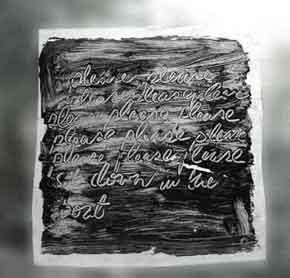 please please
please please please
please please please
please please please
please please please
sit down in the
boat